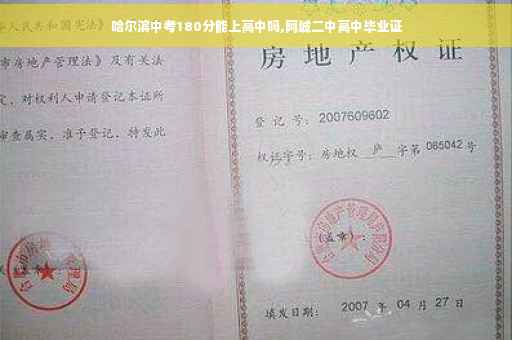 哈尔滨中考180分能上高中吗,阿城二中高中毕业证
人民共和国宪法》
市房地产管理法》及有关法
定，对权利人申请登记本证所
审查属实，准予登记，特发此
房地产权证
登记号：2007609602
权证字号：房地权 庐 字第 085042 号
（盖章）：
填发日期：2007 年 04 月 27 日